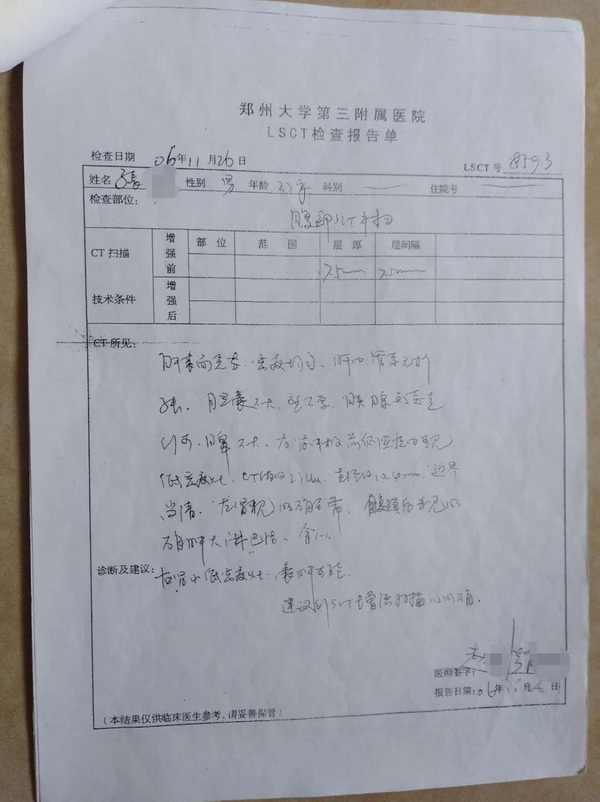 郑州大学第三附属医院
LSCT检查报告单
检查日期 06年11月26日
LSCT号 8593
姓名 张 性别 男 年龄 科别 住院号
检查部位:
腹部SCT平扫
CT扫描 增强前 部位 范围 层厚 层间隔
7.5mm 7.5mm
技术条件 增强后
CT所见:
肝表面光整、密度均匀、肝内管系无扩
张。胆囊不大,壁不厚,胰腺
脾不大。右肾 可见
低密度灶,CT值约23Hu,直径约 mm,边界
尚清。左肾 明确异常,腹膜后未见明
确肿大淋巴结。余(-)
诊断及建议:
右肾小低密度灶,囊肿可能。
建议 SCT增强扫描以明确。
医师签字:
报告日期: 06年11月26日
(本结果仅供临床医生参考,请妥善保管)